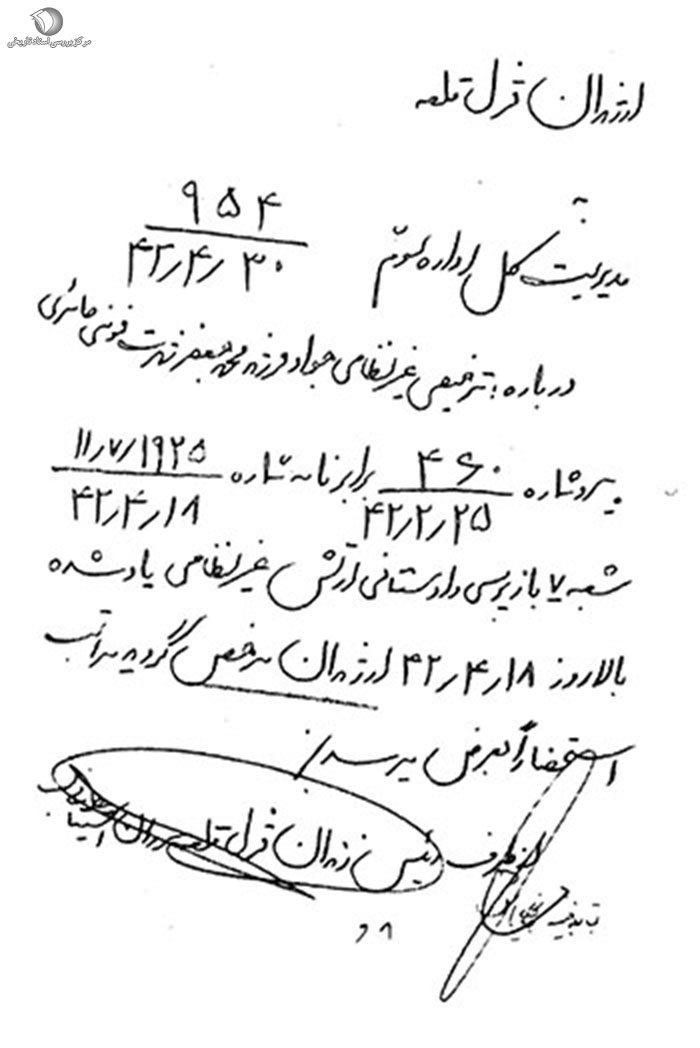 مرکز بررسی اسناد تاریخی
از زندان قزل قلعه
به
مدیریت کل اداره سوم
۹۵۴
۴۲/۴/۳۰
درباره: ترخیص غیرنظامی جواد فرزند محمدجعفر شهرت فومنی حائری
پیرو شماره ۴۶۰ برابر نامه شماره ۱۱/۷/۱۹۲۵
۴۲/۲/۲۵ ۴۲/۴/۱۸
شعبه ۷ بازپرسی دادستانی ارتش غیرنظامی یاد شده
بالا روز ۴۲/۴/۱۸ از زندان مرخص گردید مراتب
استحضاراً بعرض میرسد/
از طرف رئیس زندان قزل قلعه